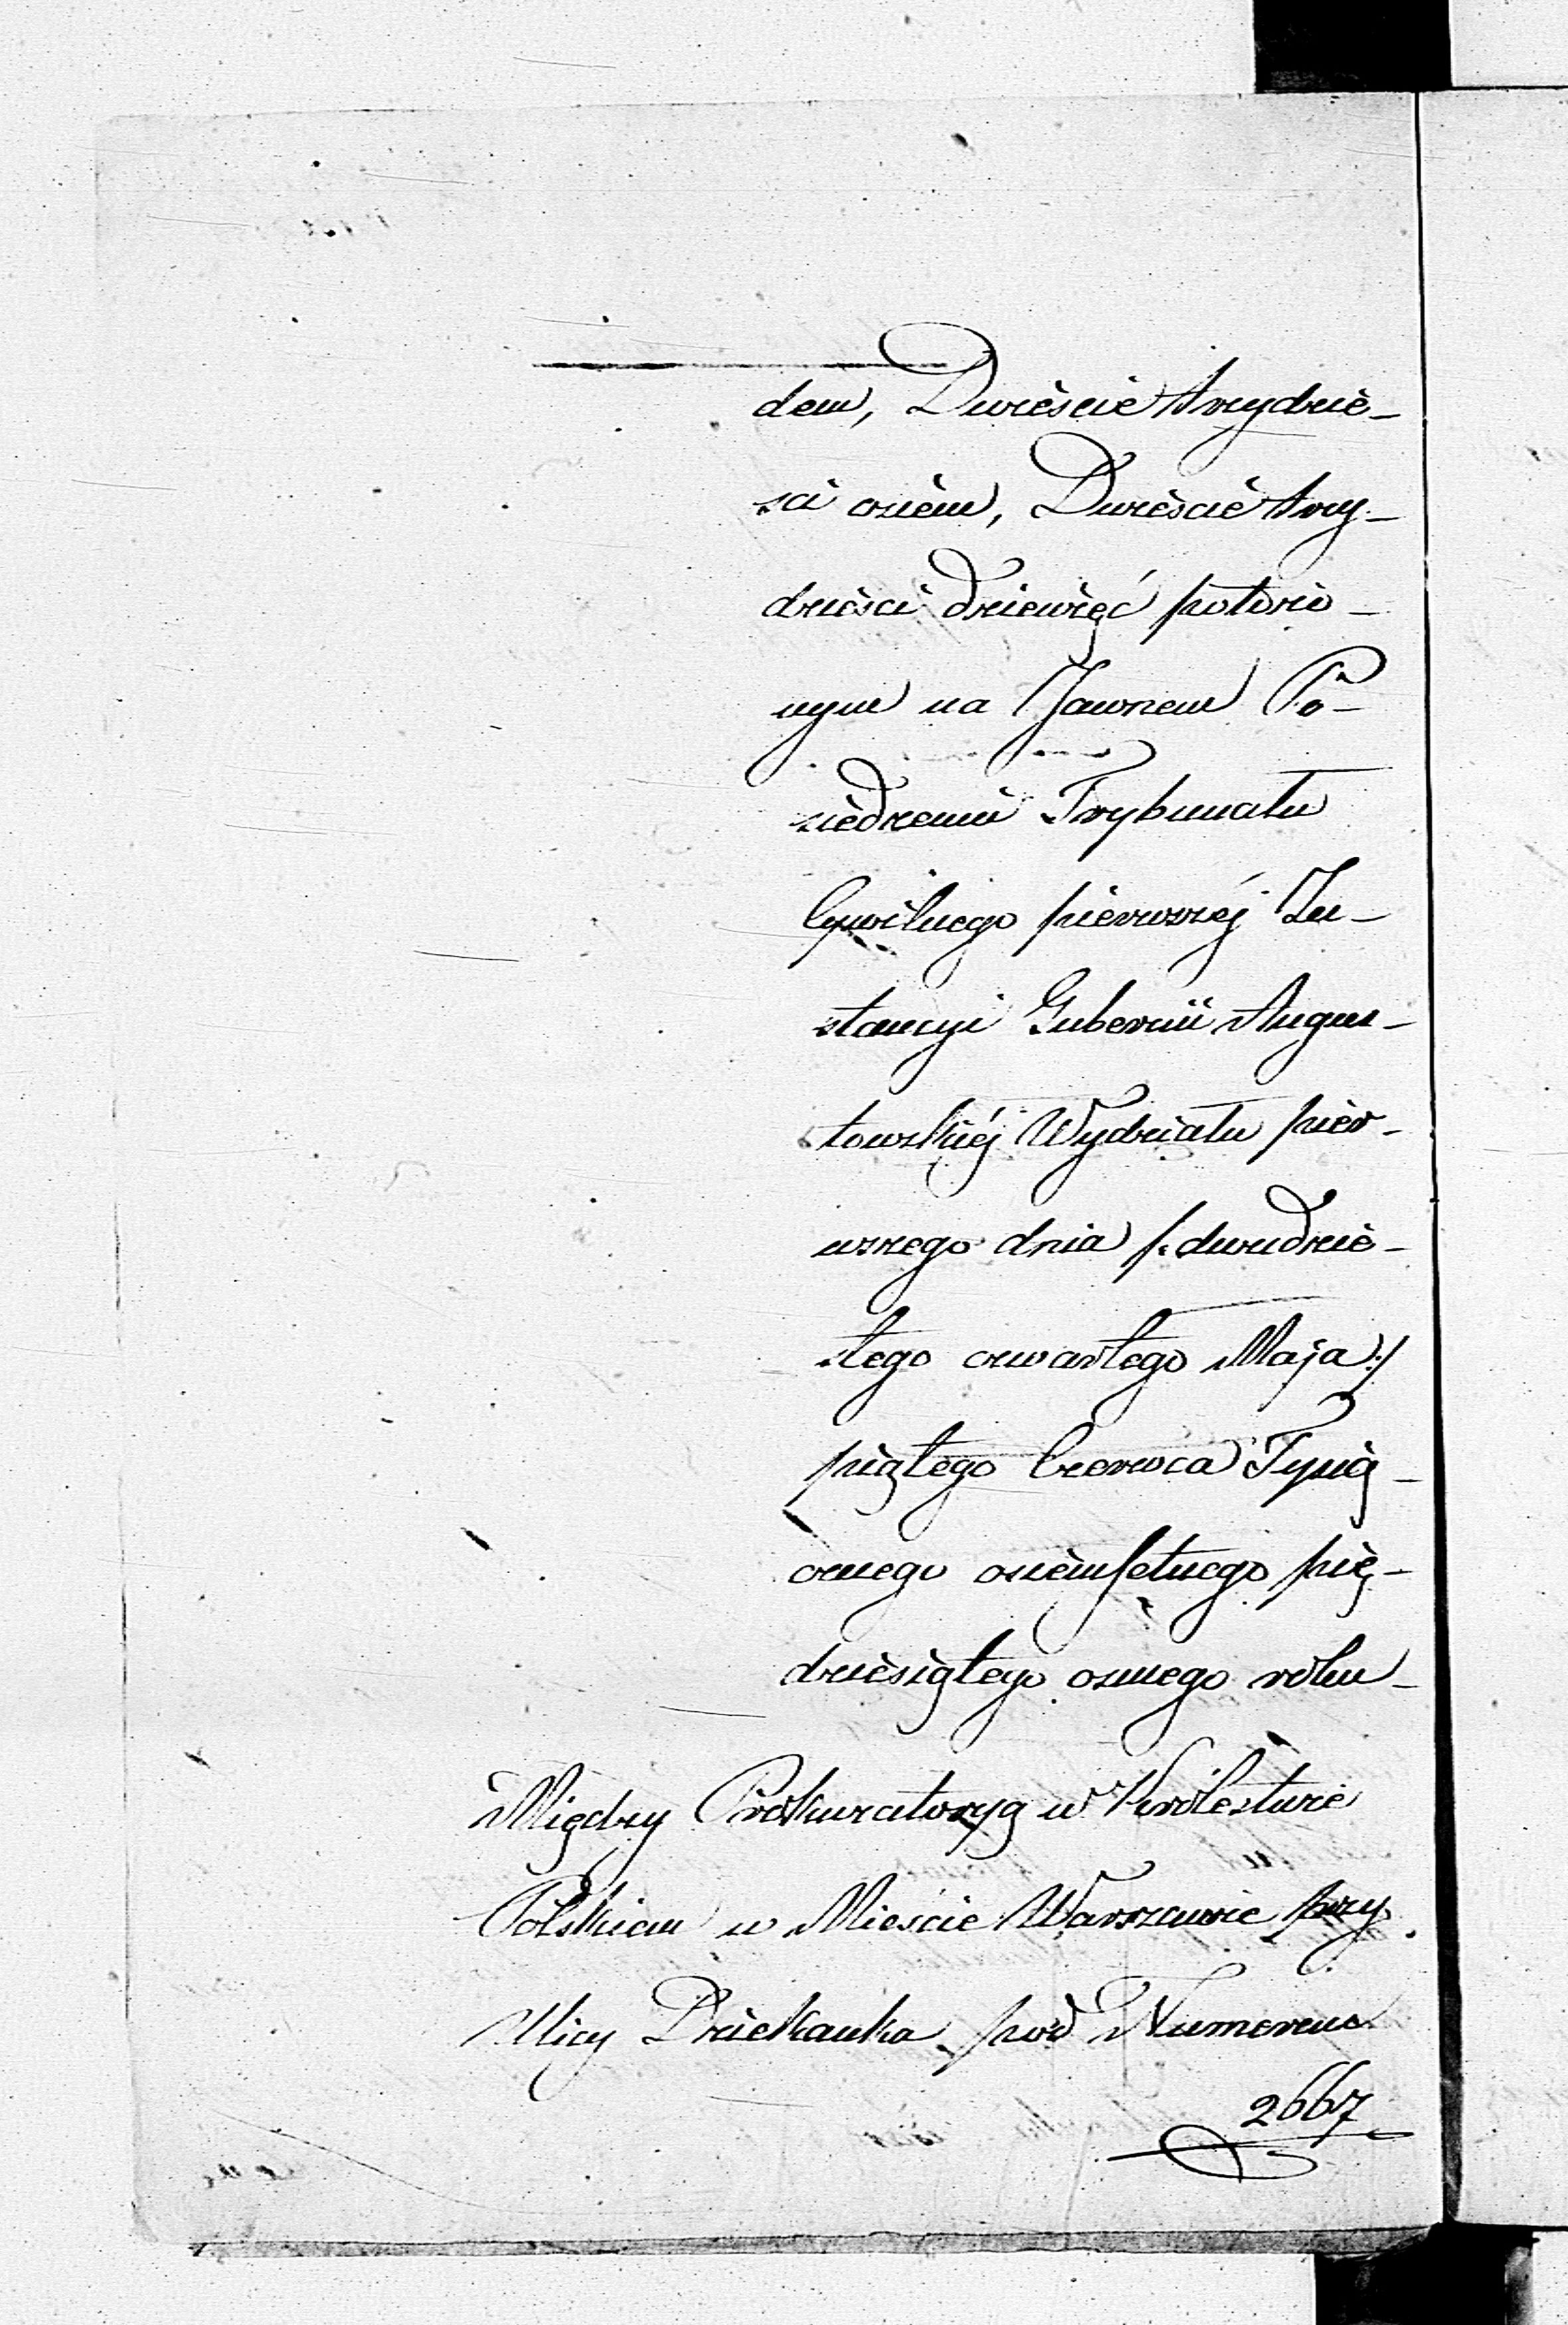 dem, Dwieście trzydzie-
ści osiem, Dwieście trzy-
dzieści dziewięć położo-
nym na Jawnem Po-
siedzeniu Trybunału
Cywilnego pierwszéj In-
stancyi Gubernii Augus-
towskiéj Wydziału pier-
wszego dnia /: dwudzie-
stego czwartego Maja :/
piątego Czerwca Tysią-
cznego osiemsetnego pię-
dziesiątego osmego roku -
Między Prokuratoryą w Królestwie
Polskiem w Mieście Warszawie przy
Ulicy Dziekanka pod Numerem
2667